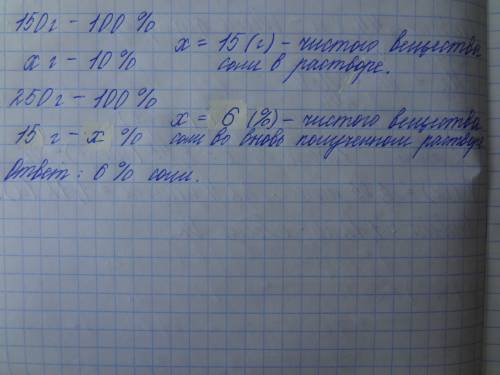 150 г - 100 %
x г - 10 %
x = 15 (г) - чистого вещества
соли в растворе.
250 г - 100 %
15 г - x %
x = 6 (%) - чистого вещества
соли во вновь полученном растворе
Ответ: 6 % соли.